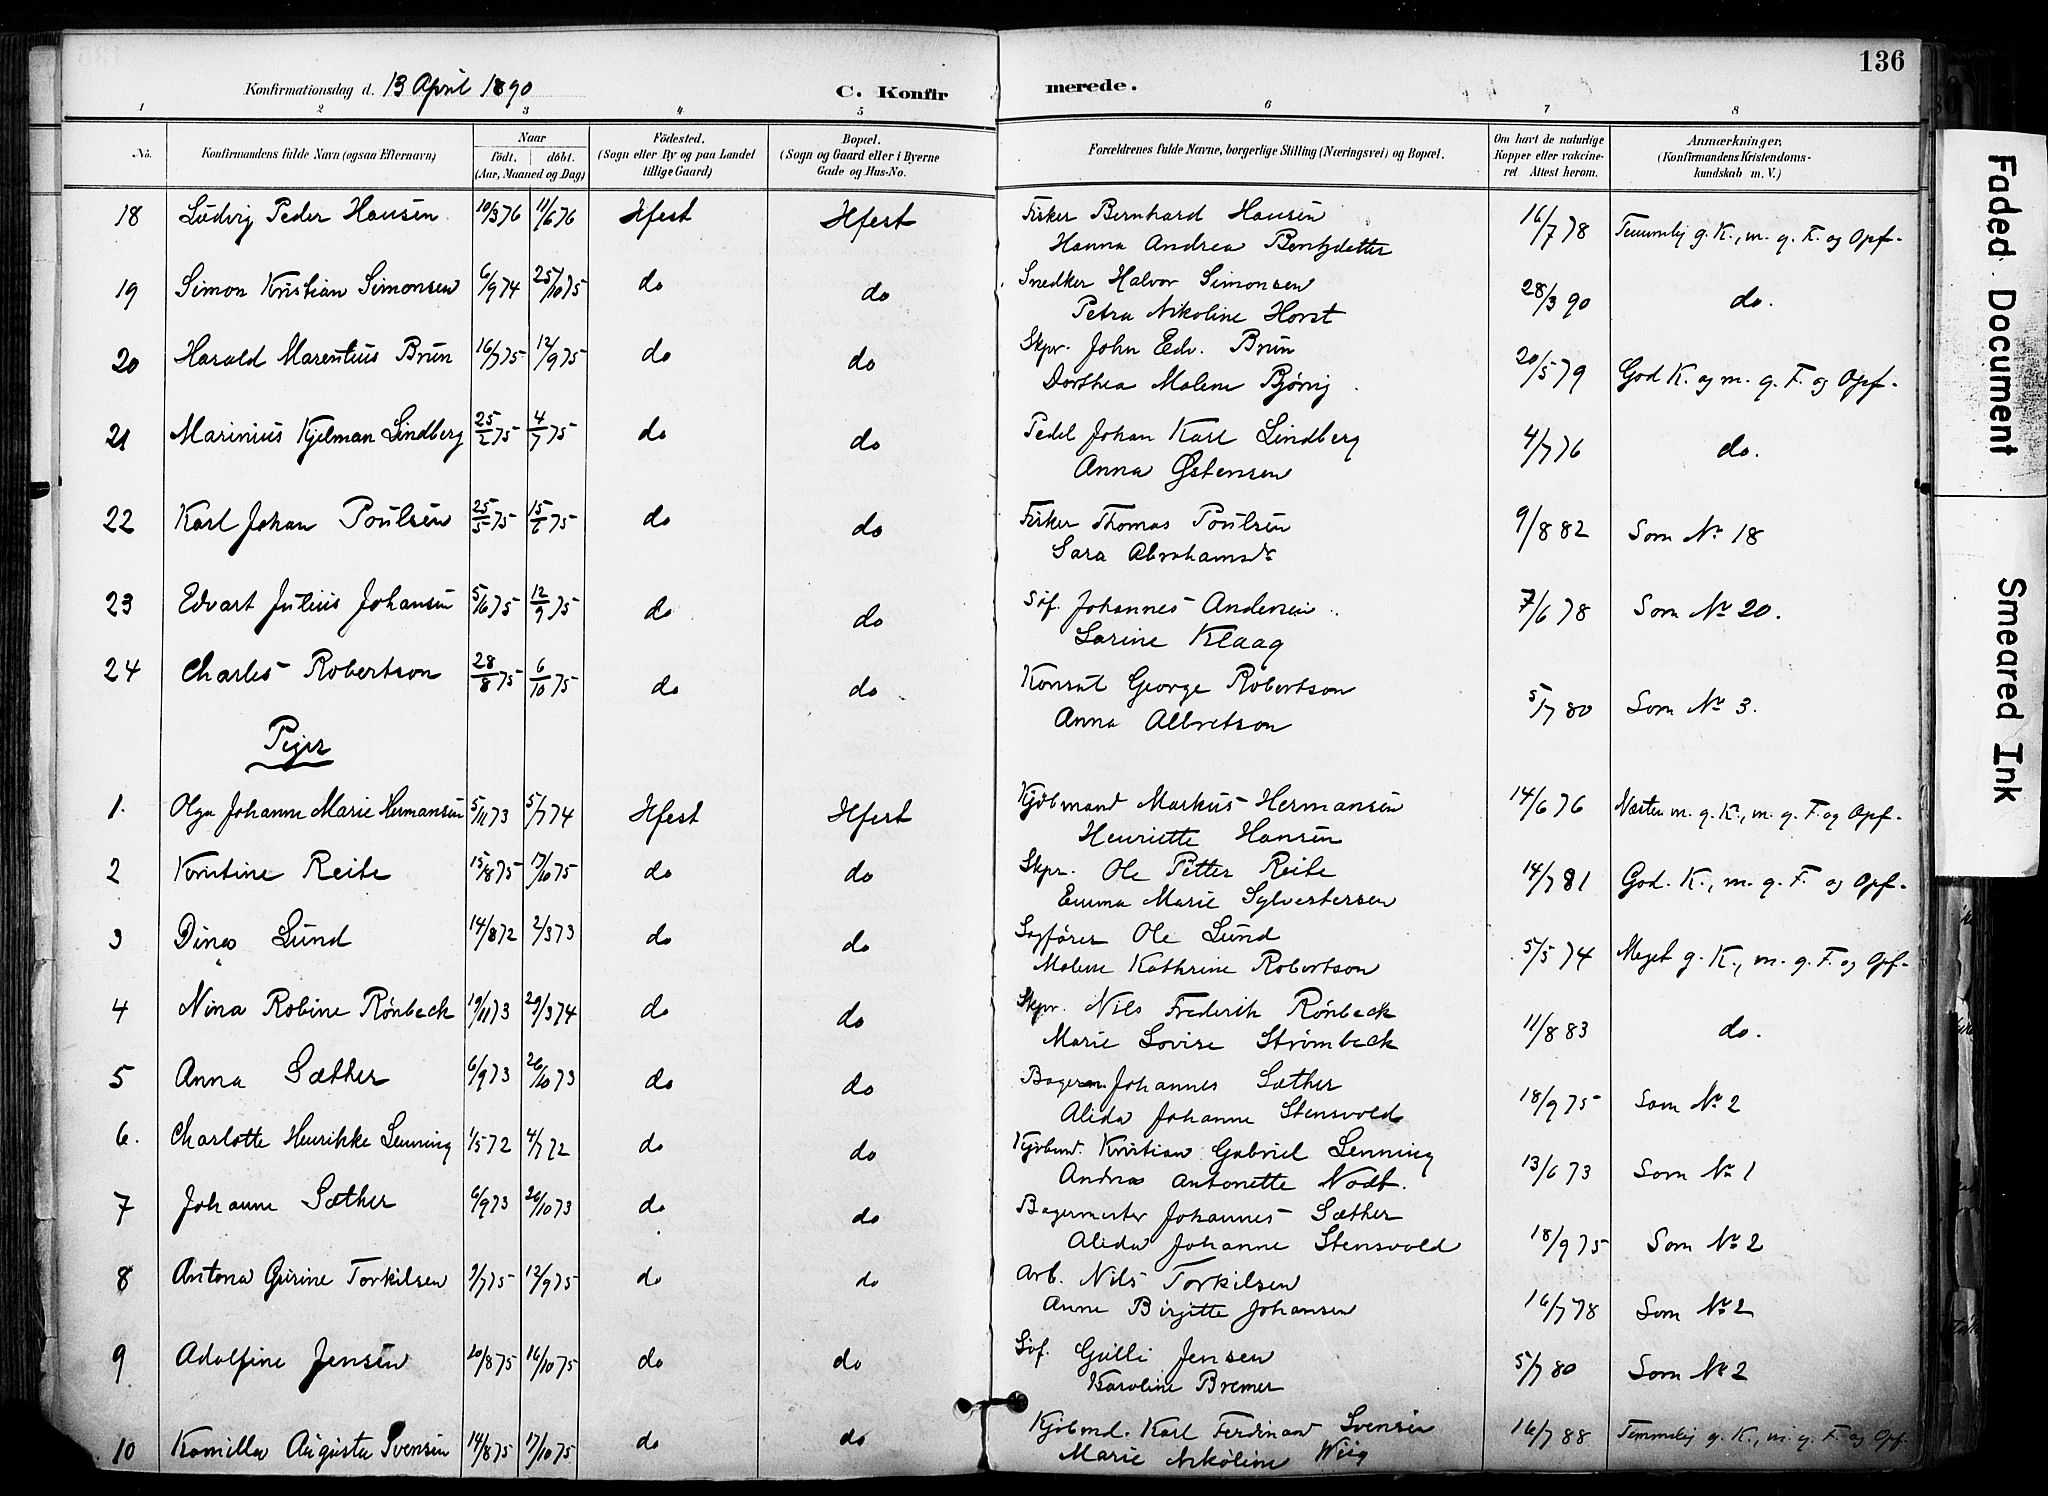 136
Konfirmationsdag d. 13 April 1890
C. Konfirmerede.
1 2 3 4 5 6 7 8
No.
Konfirmandens fulde Navn (ogsaa Efternavn)
Naar
födt. döbt.
(Aar, Maaned og Dag)
Födested.
(Sogn eller By og paa Landet
tillige Gaard)
Bopæl.
(Sogn og Gaard eller i Byerne
Gade og Hus-No.
Forældrenes fulde Navne, borgerlige Stilling (Næringsvei) og Bopæl.
Om havt de naturlige
Kopper eller vakcine-
ret Attest herom.
Anmærkninger,
(Konfirmandens Kristendoms-
kundskab m. V.)
18 Ludvig Peder Hansen 10/3 76 11/6 76 Hfest Hfest Fisker Bernhard Hansen 16/7 78 Temmelig g. K., m. g. F. og Opf.
Hanna Andrea Bentzdatter
19 Simon Kristian Simonsen 6/9 74 25/10 75 do do Snedker Halvor Simonsen 28/3 90 do.
Petra Nikoline Horst
20 Harald Marentius Brun 16/7 75 12/9 75 do do Skpr. John Edv. Brun 20/5 79 God K. og m. g. F. og Opf.
Dorthea Malene Bjørvig
21 Marinius Kjelman Lindberg 25/2 75 4/7 75 do do Pedel Johan Karl Lindberg 4/7 76 do.
Anna Østensen
22 Karl Johan Poulsen 25/5 75 15/6 75 do do Fisker Thomas Poulsen 9/8 82 Som No 18
Sara Abrahamsdr
23 Edvart Julius Johansen 5/6 75 12/9 75 do do Søf. Johannes Andersen 7/6 78 Som No 20.
Sarine Klaag
24 Charles Robertson 28/8 75 6/10 75 do do Konsul George Robertson 5/7 80 Som No 3.
Anna Albretson
Piger
1. Olga Johanne Marie Hermansen 5/11 73 5/7 74 Hfest Hfest Kjøbmand Markus Hermansen 14/6 76 Næsten m. g. K., m. g. F. og Opf.
Henriette Hansen
2 Kristine Reite 15/8 75 17/10 75 do do Skpr. Ole Petter Reite 14/7 81 God. K., m. g. F. og Opf.
Emma Marie Sylvestersen
3 Dina Lund 14/8 72 2/3 73 do do Sagfører Ole Lund 5/5 74 Meget g. K., m. g. F. og Opf.
Malene Kathrine Robertson
4 Nina Robine Rønbeck 19/11 73 29/3 74 do do Skpr. Nils Frederik Rønbeck 11/8 83 do.
Marie Lovise Strømbeck
5 Anna Sæther 6/9 73 26/10 73 do do Bagerm. Johannes Sæther 18/9 75 Som No 2
Alida Johanne Stensvold
6. Charlotte Henrikke Lenning 1/5 72 4/7 72 do do Kjøbmd. Kristian Gabriel Lenning 13/6 73 Som No 1
Andrea Antonette Nodt.
7 Johanne Sæther 6/9 73 26/10 73 do do Bagermester Johannes Sæther 18/9 75 Som No 2
Alida Johanne Stensvold
8 Antona Gurine Torkilsen 3/7 75 12/9 75 do do Arb. Nils Torkilsen 16/7 78 Som No 2
Anne Birgitte Johansen
9 Adolfine Jensen 20/8 75 16/10 75 do do Søf. Gulli Jensen 5/7 80 Som No 2
Karoline Bremer
10 Kamilla Augusta Svensen 14/8 75 17/10 75 do do Kjøbmd. Karl Ferdinand Svensen 16/7 88 Temmelig g. K., m. g. F. og Opf.
Marie Nikoline Wiig
Faded Document
Smeared Ink